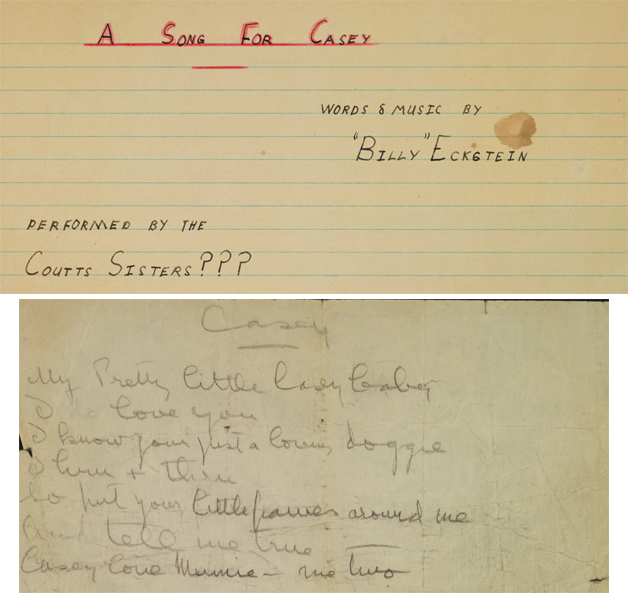 A SONG FOR CASEY
WORDS & MUSIC BY
"BILLY" ECKSTEIN
PERFORMED BY THE
COUTTS SISTERS???
Casey
My Pretty little Casey baby
I do love you
I know your just a lovin doggie
thru + thru
So put your little pawes around me
And tell me true
Casey love Mumie - me two